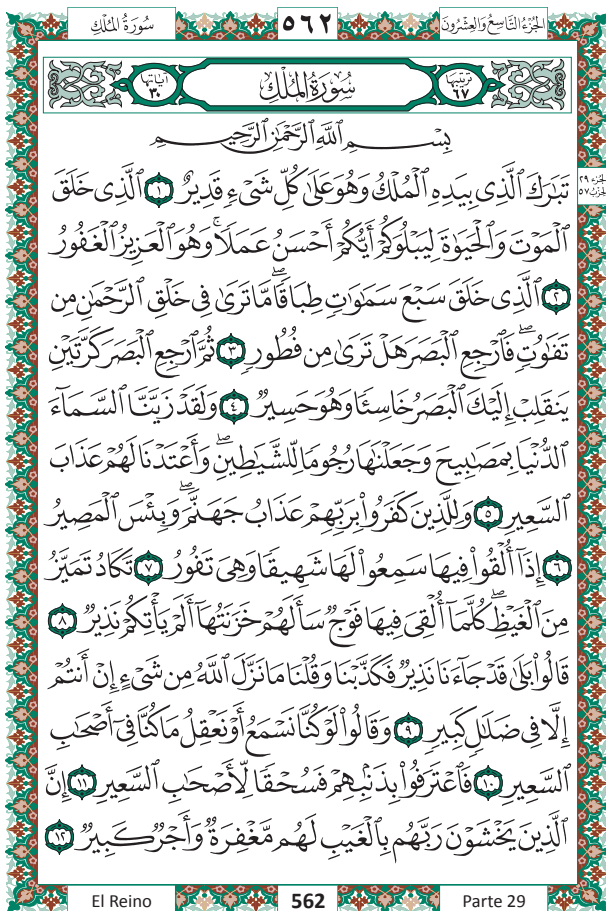 الجُزْءُ التَّاسِعُ وَالعِشْرُونَ ٥٦٢ سُورَةُ المُلْكِ
ترتيبها ٦٧ سُورَةُ المُلْكِ آياتها ٣٠
بِسْمِ ٱللَّهِ ٱلرَّحْمَٰنِ ٱلرَّحِيمِ
الجزء ٢٩
الحزب ٥٧
تَبَٰرَكَ ٱلَّذِى بِيَدِهِ ٱلْمُلْكُ وَهُوَ عَلَىٰ كُلِّ شَىْءٍ قَدِيرٌ ١ ٱلَّذِى خَلَقَ
ٱلْمَوْتَ وَٱلْحَيَوٰةَ لِيَبْلُوَكُمْ أَيُّكُمْ أَحْسَنُ عَمَلًا ۚ وَهُوَ ٱلْعَزِيزُ ٱلْغَفُورُ
٢ ٱلَّذِى خَلَقَ سَبْعَ سَمَٰوَٰتٍ طِبَاقًا ۖ مَّا تَرَىٰ فِى خَلْقِ ٱلرَّحْمَٰنِ مِن
تَفَٰوُتٍ ۖ فَٱرْجِعِ ٱلْبَصَرَ هَلْ تَرَىٰ مِن فُطُورٍ ٣ ثُمَّ ٱرْجِعِ ٱلْبَصَرَ كَرَّتَيْنِ
يَنقَلِبْ إِلَيْكَ ٱلْبَصَرُ خَاسِئًا وَهُوَ حَسِيرٌ ٤ وَلَقَدْ زَيَّنَّا ٱلسَّمَآءَ
ٱلدُّنْيَا بِمَصَٰبِيحَ وَجَعَلْنَٰهَا رُجُومًا لِّلشَّيَٰطِينِ ۖ وَأَعْتَدْنَا لَهُمْ عَذَابَ
ٱلسَّعِيرِ ٥ وَلِلَّذِينَ كَفَرُوا۟ بِرَبِّهِمْ عَذَابُ جَهَنَّمَ ۖ وَبِئْسَ ٱلْمَصِيرُ
٦ إِذَآ أُلْقُوا۟ فِيهَا سَمِعُوا۟ لَهَا شَهِيقًا وَهِىَ تَفُورُ ٧ تَكَادُ تَمَيَّزُ
مِنَ ٱلْغَيْظِ ۖ كُلَّمَآ أُلْقِىَ فِيهَا فَوْجٌ سَأَلَهُمْ خَزَنَتُهَآ أَلَمْ يَأْتِكُمْ نَذِيرٌ ٨
قَالُوا۟ بَلَىٰ قَدْ جَآءَنَا نَذِيرٌ فَكَذَّبْنَا وَقُلْنَا مَا نَزَّلَ ٱللَّهُ مِن شَىْءٍ إِنْ أَنتُمْ
إِلَّا فِى ضَلَٰلٍ كَبِيرٍ ٩ وَقَالُوا۟ لَوْ كُنَّا نَسْمَعُ أَوْ نَعْقِلُ مَا كُنَّا فِىٓ أَصْحَٰبِ
ٱلسَّعِيرِ ١٠ فَٱعْتَرَفُوا۟ بِذَنۢبِهِمْ فَسُحْقًا لِّأَصْحَٰبِ ٱلسَّعِيرِ ١١ إِنَّ
ٱلَّذِينَ يَخْشَوْنَ رَبَّهُم بِٱلْغَيْبِ لَهُم مَّغْفِرَةٌ وَأَجْرٌ كَبِيرٌ ١٢
El Reino 562 Parte 29